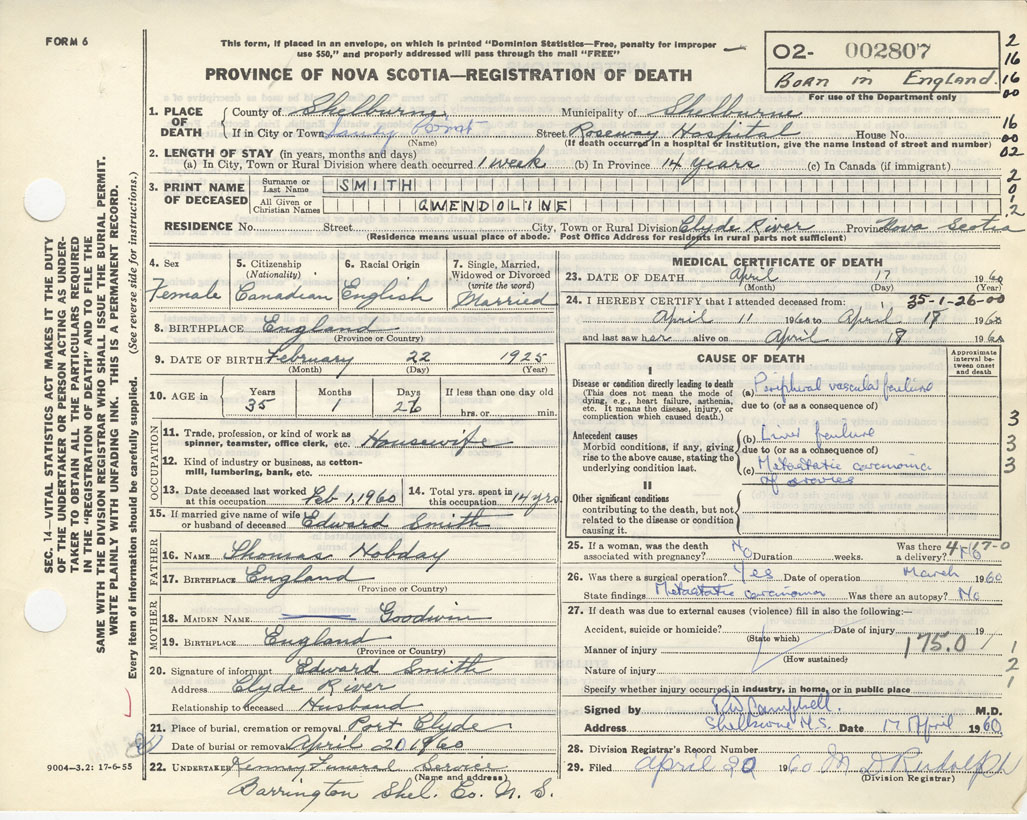 FORM 6
This form, if placed in an envelope, on which is printed "Dominion Statistics—Free, penalty for improper
use $50," and properly addressed will pass through the mail "FREE"
PROVINCE OF NOVA SCOTIA—REGISTRATION OF DEATH
O2- 002807
Born in England.
For use of the Department only
2
16
16
00
16
00
02
2
0
1
2
1. PLACE OF DEATH
County of Shelburne Municipality of Shelburne
If in City or Town Sandy Point Street Roseway Hospital House No.
(Name) (If death occurred in a hospital or institution, give the name instead of street and number)
2. LENGTH OF STAY (in years, months and days)
(a) In City, Town or Rural Division where death occurred 1 week (b) In Province 14 years (c) In Canada (if immigrant)
3. PRINT NAME OF DECEASED
Surname or Last Name SMITH
All Given or Christian Names GWENDOLINE
RESIDENCE No. Street City, Town or Rural Division Clyde River Province Nova Scotia
(Residence means usual place of abode. Post Office Address for residents in rural parts not sufficient)
4. Sex Female
5. Citizenship (Nationality) Canadian
6. Racial Origin English
7. Single, Married, Widowed or Divorced (write the word) Married
8. BIRTHPLACE England
(Province or Country)
9. DATE OF BIRTH February 22 1925
(Month) (Day) (Year)
10. AGE in Years 35 Months 1 Days 26 If less than one day old hrs. or min.
OCCUPATION
11. Trade, profession, or kind of work as spinner, teamster, office clerk, etc. Housewife
12. Kind of industry or business, as cotton-mill, lumbering, bank, etc.
13. Date deceased last worked at this occupation Feb 1, 1960
14. Total yrs. spent in this occupation 14 yrs.
15. If married give name of wife or husband of deceased Edward Smith
FATHER
16. NAME Thomas Hobday
17. BIRTHPLACE England
(Province or Country)
MOTHER
18. MAIDEN NAME Goodwin
19. BIRTHPLACE England
(Province or Country)
20. Signature of informant Edward Smith
Address Clyde River
Relationship to deceased Husband
21. Place of burial, cremation or removal Port Clyde
Date of burial or removal April 20 1960
22. UNDERTAKER Kenney Funeral Service
(Name and address)
Barrington Shel. Co. N. S.
MEDICAL CERTIFICATE OF DEATH
23. DATE OF DEATH April 17 1960
(Month) (Day) (Year)
24. I HEREBY CERTIFY that I attended deceased from: 35-1-26-00
April 11 1960 to April 17 1960
and last saw her alive on April 17 1960
CAUSE OF DEATH
Approximate interval between onset and death
I
Disease or condition directly leading to death
(This does not mean the mode of dying, e.g., heart failure, asthenia, etc. It means the disease, injury, or complication which caused death.)
(a) Peripheral vascular failure
due to (or as a consequence of)
Antecedent causes
Morbid conditions, if any, giving rise to the above cause, stating the underlying condition last.
(b) Liver failure
due to (or as a consequence of)
(c) Metastatic carcinoma
of ovaries
3
3
3
II
Other significant conditions
contributing to the death, but not related to the disease or condition causing it.
25. If a woman, was the death associated with pregnancy? No Duration weeks. Was there a delivery? No
26. Was there a surgical operation? Yes Date of operation March 1960
State findings Metastatic carcinoma Was there an autopsy? No
27. If death was due to external causes (violence) fill in also the following:—
Accident, suicide or homicide? Date of injury 19
(State which)
Manner of injury 175.0
(How sustained)
Nature of injury
Specify whether injury occurred in industry, in home, or in public place
1
2
1
Signed by Campbell M.D.
Address Shelburne N.S. Date 17 April 1960
28. Division Registrar's Record Number
29. Filed April 20 1960 M D Rudolph
(Division Registrar)
SEC. 14—VITAL STATISTICS ACT MAKES IT THE DUTY
OF THE UNDERTAKER OR PERSON ACTING AS UNDER-
TAKER TO OBTAIN ALL THE PARTICULARS REQUIRED
IN THE "REGISTRATION OF DEATH" AND TO FILE THE
SAME WITH THE DIVISION REGISTRAR WHO SHALL ISSUE THE BURIAL PERMIT.
WRITE PLAINLY WITH UNFADING INK. THIS IS A PERMANENT RECORD.
Every item of information should be carefully supplied. (See reverse side for instructions.)
9004-3.2: 17-6-55